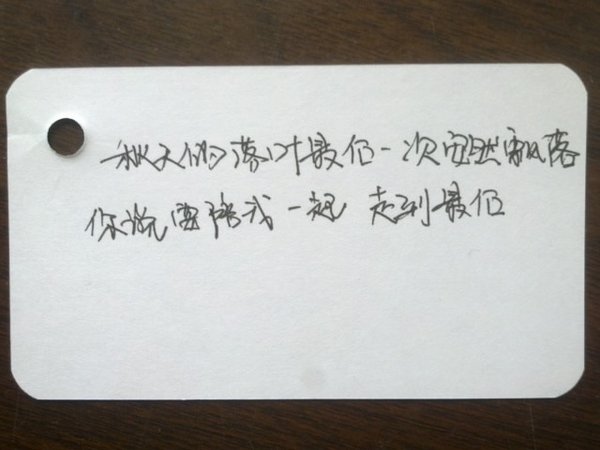 秋天的落叶最后一次安然飘落
你说要陪我一起 走到最后